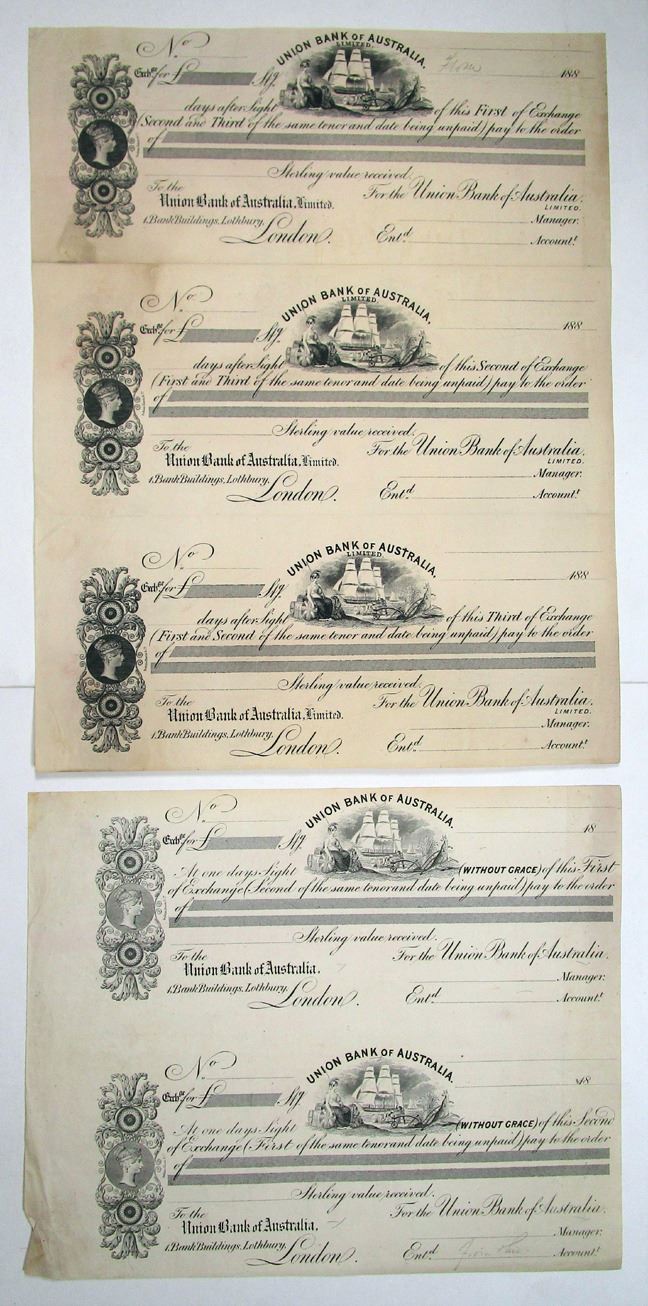 No
UNION BANK OF AUSTRALIA,
LIMITED.
Exchge for £ Stg. 188
days after Sight of this First of Exchange
(Second and Third of the same tenor and date being unpaid) pay to the order
of
Sterling value received.
To the For the Union Bank of Australia.
Union Bank of Australia, Limited. LIMITED.
1, Bank Buildings, Lothbury, Manager.
London. Entd. Accountt.
No
UNION BANK OF AUSTRALIA.
LIMITED.
Exchge for £ Stg. 188
days after Sight of this Second of Exchange
(First and Third of the same tenor and date being unpaid) pay to the order
of
Sterling value received.
To the For the Union Bank of Australia
Union Bank of Australia, Limited. LIMITED.
1, Bank Buildings, Lothbury, Manager.
London. Entd. Accountt.
No
UNION BANK OF AUSTRALIA.
LIMITED.
Exchge for £ Stg. 188
days after Sight of this Third of Exchange
(First and Second of the same tenor and date being unpaid) pay to the order
of
Sterling value received.
To the For the Union Bank of Australia.
Union Bank of Australia, Limited. LIMITED.
1, Bank Buildings, Lothbury, Manager.
London. Entd. Accountt.
No
UNION BANK OF AUSTRALIA.
Exchge for £ Stg. 18
At one days Sight (WITHOUT GRACE) of this First
of Exchange (Second of the same tenor and date being unpaid) pay to the order
of
Sterling value received.
To the For the Union Bank of Australia.
Union Bank of Australia.
1, Bank Buildings, Lothbury, Manager.
London. Entd. Accountt.
No
UNION BANK OF AUSTRALIA.
Exchge for £ Stg. 18
At one days Sight (WITHOUT GRACE) of this Second
of Exchange (First of the same tenor and date being unpaid) pay to the order
of
Sterling value received.
To the For the Union Bank of Australia.
Union Bank of Australia.
1, Bank Buildings, Lothbury, Manager.
London. Entd. Accountt.